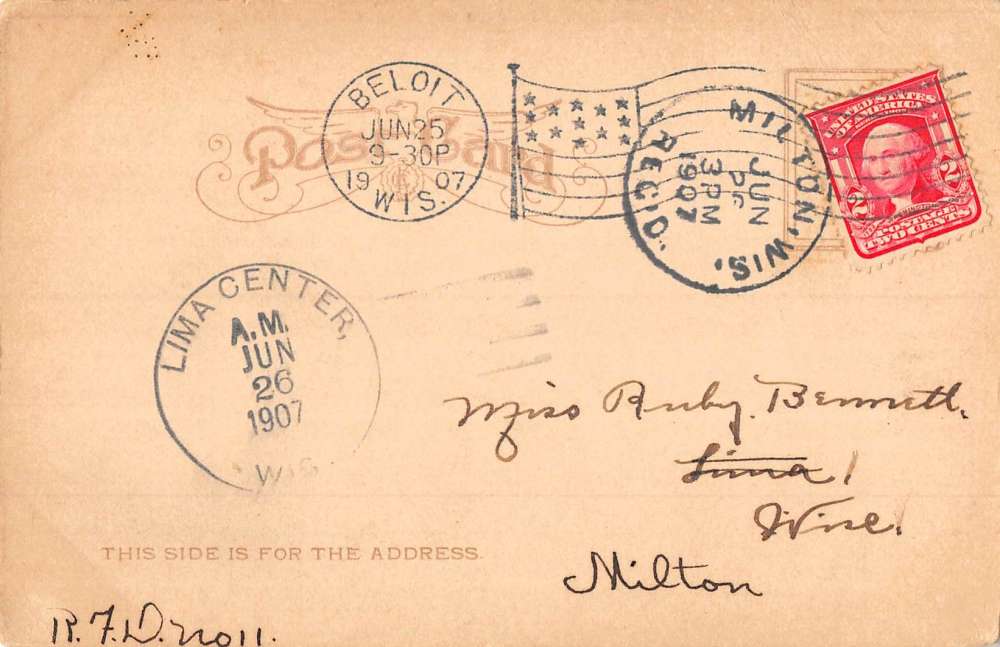 Post Card
BELOIT
JUN 25
9-30P
1907
WIS.
MILTON, WIS.
JUN
3PM
1907
REC'D.
UNITED STATES
OF AMERICA
2 2
POSTAGE
TWO CENTS
LIMA CENTER,
A.M.
JUN
26
1907
WIS
Miss Ruby Bennett.
Lima,
Wisc.
Milton
THIS SIDE IS FOR THE ADDRESS.
R.F.D. no 11.